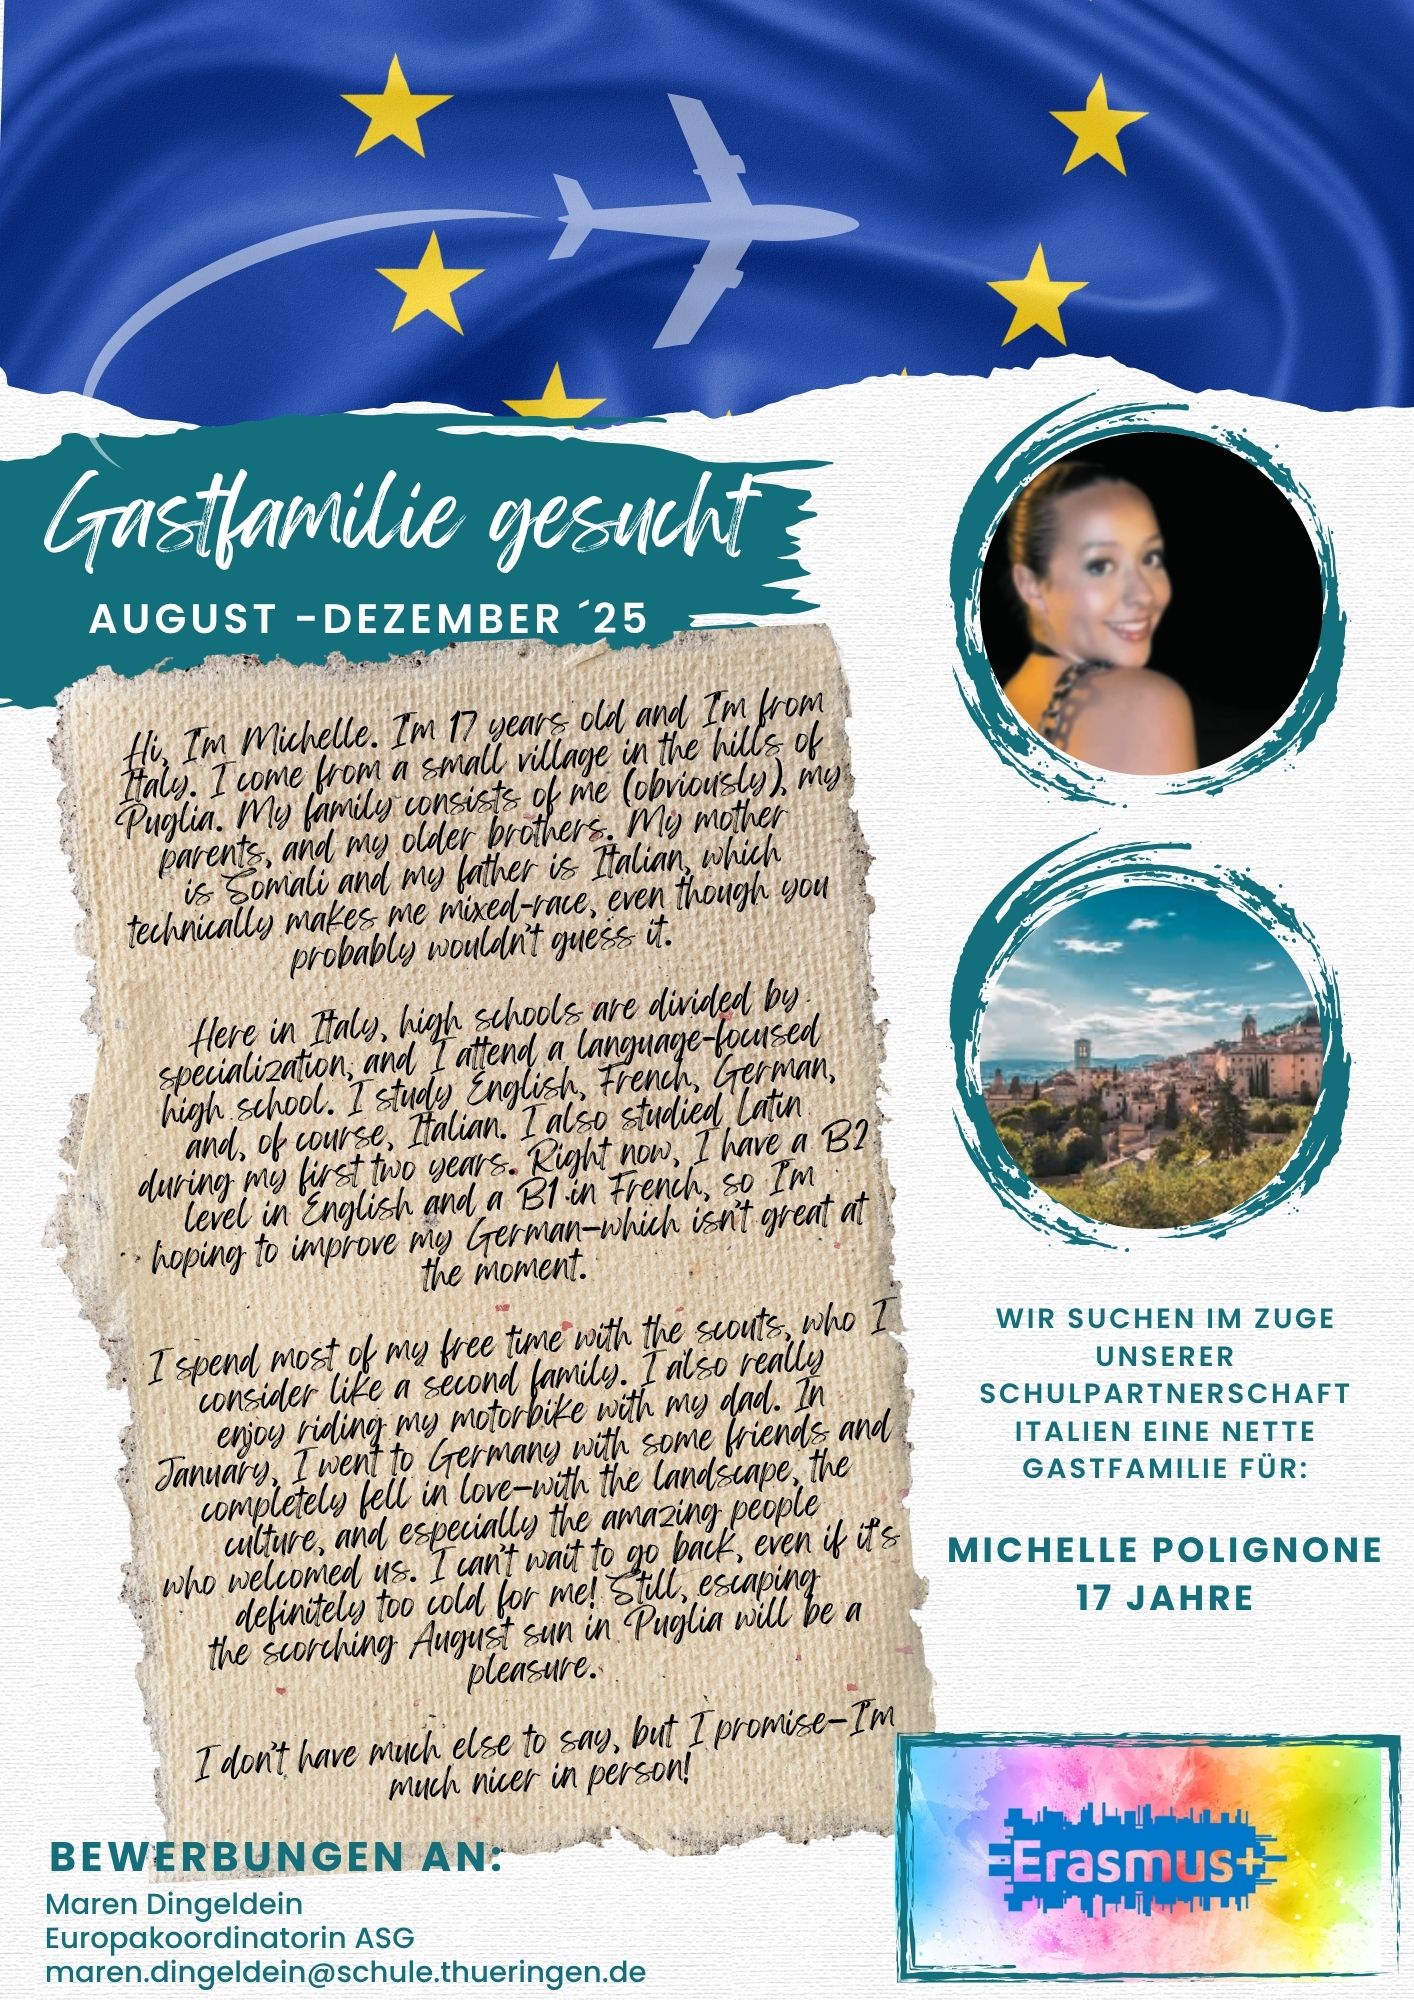 Gastfamilie gesucht
AUGUST -DEZEMBER ´25
Hi, I'm Michelle. I'm 17 years old and I'm from
Italy. I come from a small village in the hills of
Puglia. My family consists of me (obviously), my
parents, and my older brothers. My mother
is Somali and my father is Italian, which
technically makes me mixed-race, even though you
probably wouldn't guess it.
Here in Italy, high schools are divided by
specialization, and I attend a language-focused
high school. I study English, French, German,
and, of course, Italian. I also studied Latin
during my first two years. Right now, I have a B2
level in English and a B1 in French, so I'm
hoping to improve my German—which isn't great at
the moment.
I spend most of my free time with the scouts, who I
consider like a second family. I also really
enjoy riding my motorbike with my dad. In
January, I went to Germany with some friends and
completely fell in love—with the landscape, the
culture, and especially the amazing people
who welcomed us. I can't wait to go back, even if it's
definitely too cold for me! Still, escaping
the scorching August sun in Puglia will be a
pleasure.
I don't have much else to say, but I promise—I'm
much nicer in person!
WIR SUCHEN IM ZUGE
UNSERER
SCHULPARTNERSCHAFT
ITALIEN EINE NETTE
GASTFAMILIE FÜR:
MICHELLE POLIGNONE
17 JAHRE
Erasmus+
BEWERBUNGEN AN:
Maren Dingeldein
Europakoordinatorin ASG
maren.dingeldein@schule.thueringen.de